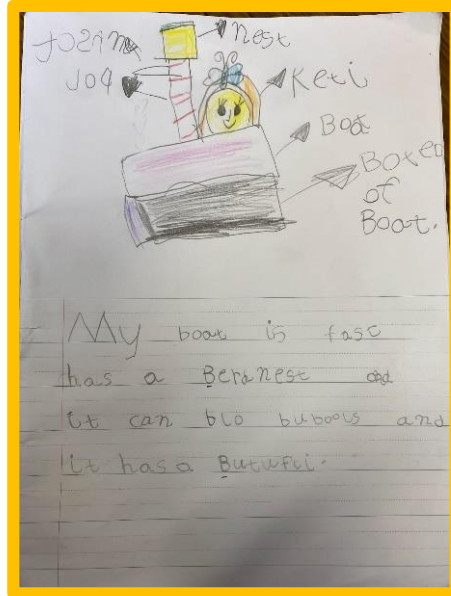 nest
Jog
Keti
Boat
Boxed
of
Boat.
My boat is fasc
has a Beranest and
it can blo bubools and
it has a Butufli.